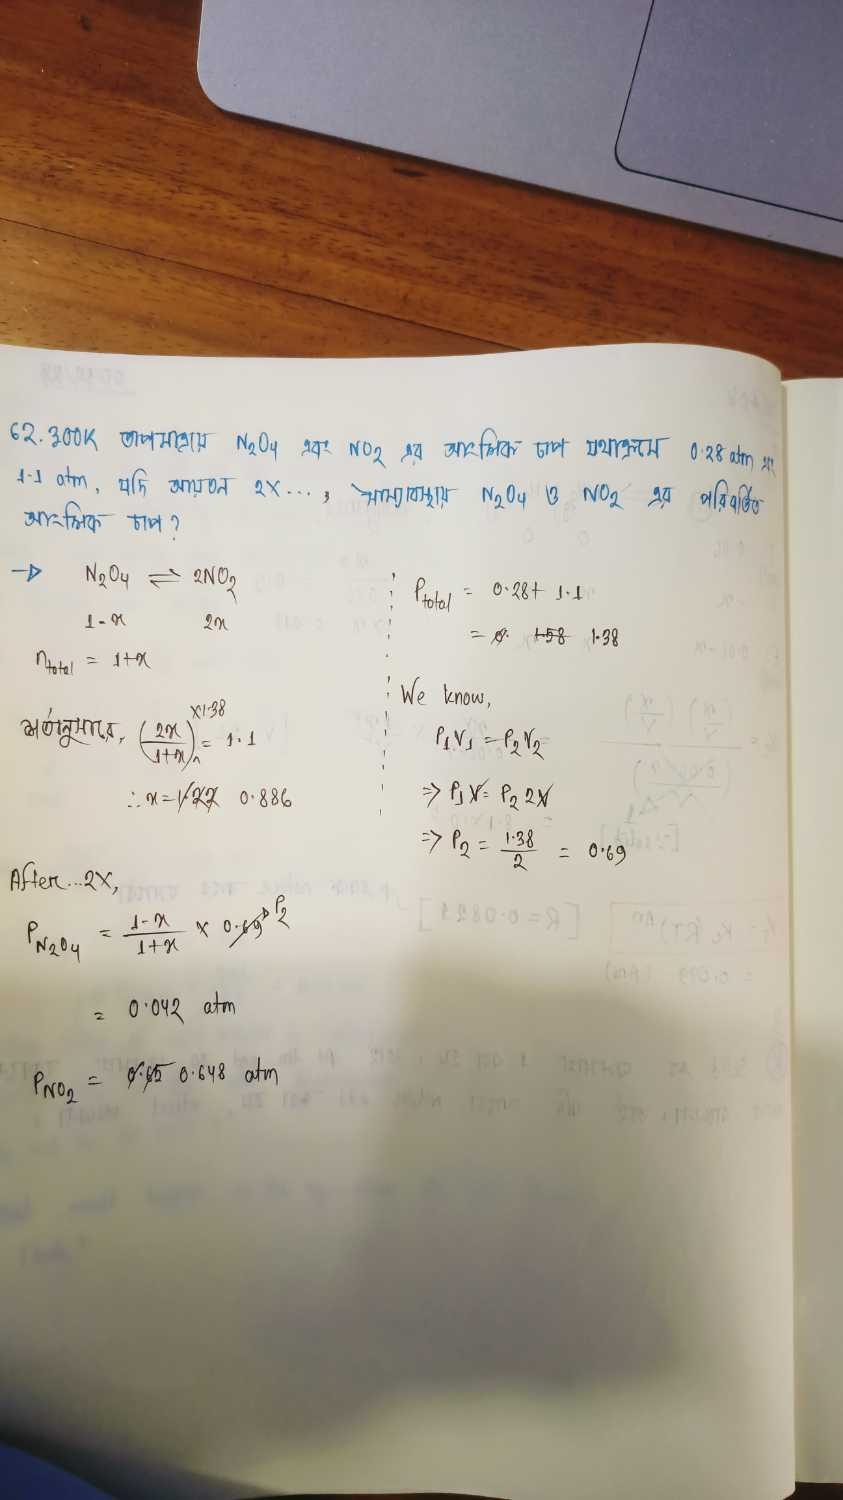 62. 300K তাপমাত্রায় N2O4 এবং NO2 এর আংশিক চাপ যথাক্রমে 0.28 atm এবং
1.1 atm, যদি আয়তন 2X..., সাম্যাবস্থায় N2O4 ও NO2 এর পরিবর্তিত
আংশিক চাপ?
→ N2O4 ⇌ 2NO2
1-x 2x
ntotal = 1+x
শর্তানুসারে, (2x/1+x) ×1.38 = 1.1
∴ x = 0.886
Ptotal = 0.28 + 1.1
= 1.58 1.38
We know,
P1V1 = P2V2
⇒ P1V = P2 2V
⇒ P2 = 1.38/2 = 0.69
After...2X,
PN2O4 = 1-x/1+x × 0.69 P2
= 0.042 atm
PNO2 = 0.65 0.648 atm